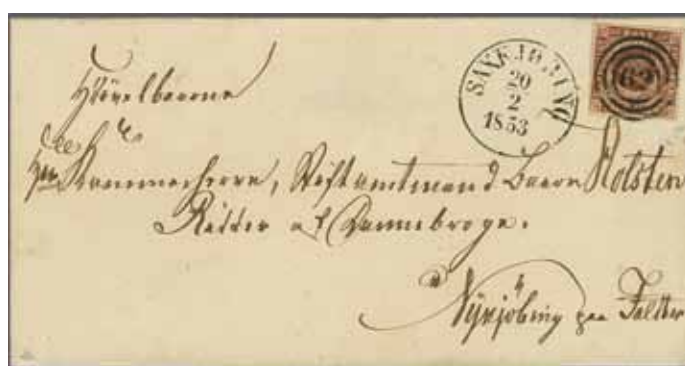 SAXKJØBING
20
2
1853
62
Kammerherre, Stiftamtmand Baron Holsten
Ridder af Dannebroge.
Nykjøbing paa Falster